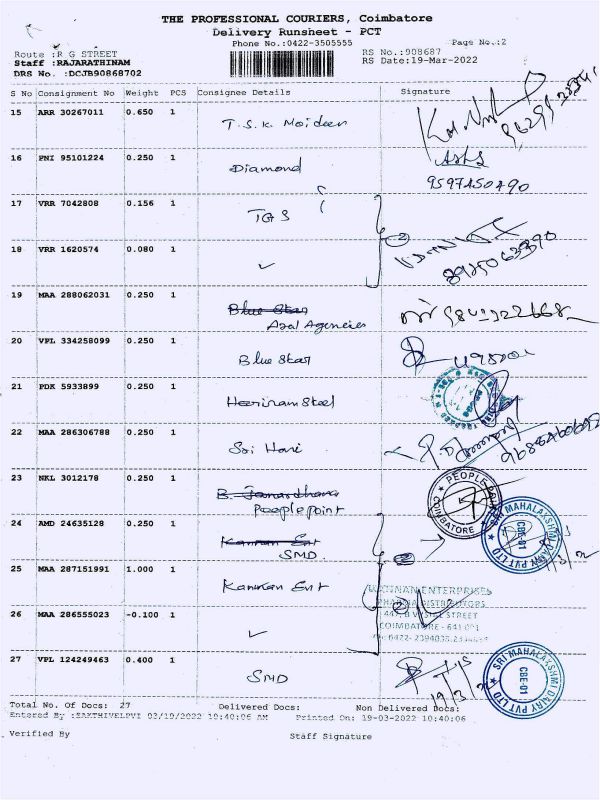 THE PROFESSIONAL COURIERS, Coimbatore
Delivery Runsheet - PCT
Phone No.:0422-3505555
Page No.:2
Route :R G STREET
Staff :RAJARATHINAM
DRS No. :DCJB90868702
RS No.:908687
RS Date:19-Mar-2022
S No Consignment No Weight PCS Consignee Details Signature
15 ARR 30267011 0.650 1 T.S.K. Moideen
16 PNI 95101224 0.250 1 Diamond
9597450490
17 VRR 7042808 0.156 1 TGS
2
18 VRR 1620574 0.080 1 ✓
8925063390
19 MAA 288062031 0.250 1 Blue Star
Asal Agencies
20 VPL 334258099 0.250 1 Blue Star
21 PDK 5933899 0.250 1 Heeriram Steel
22 MAA 286306788 0.250 1 Sri Hari
23 NKL 3012178 0.250 1 B. Janardhana
Peoplepoint
PEOPLE
COIMBATORE
24 AMD 24635128 0.250 1 Kannan Ent
SMD.
SRI MAHALAKSHMI DAIRY PVT LTD
CBE-01
25 MAA 287151991 1.000 1 Kannan Ent
KANNAN ENTERPRISES
PHARMA DISTRIBUTORS
COIMBATORE - 641 001
26 MAA 286555023 -0.100 1 ✓
2
27 VPL 124249463 0.400 1 SMD
SRI MAHALAKSHMI DAIRY PVT LTD
CBE-01
Total No. Of Docs: 27 Delivered Docs: Non Delivered Docs:
Entered By :SAKTHIVELPVI 03/19/2022 10:40:06 AM Printed On: 19-03-2022 10:40:06
Verified By Staff Signature